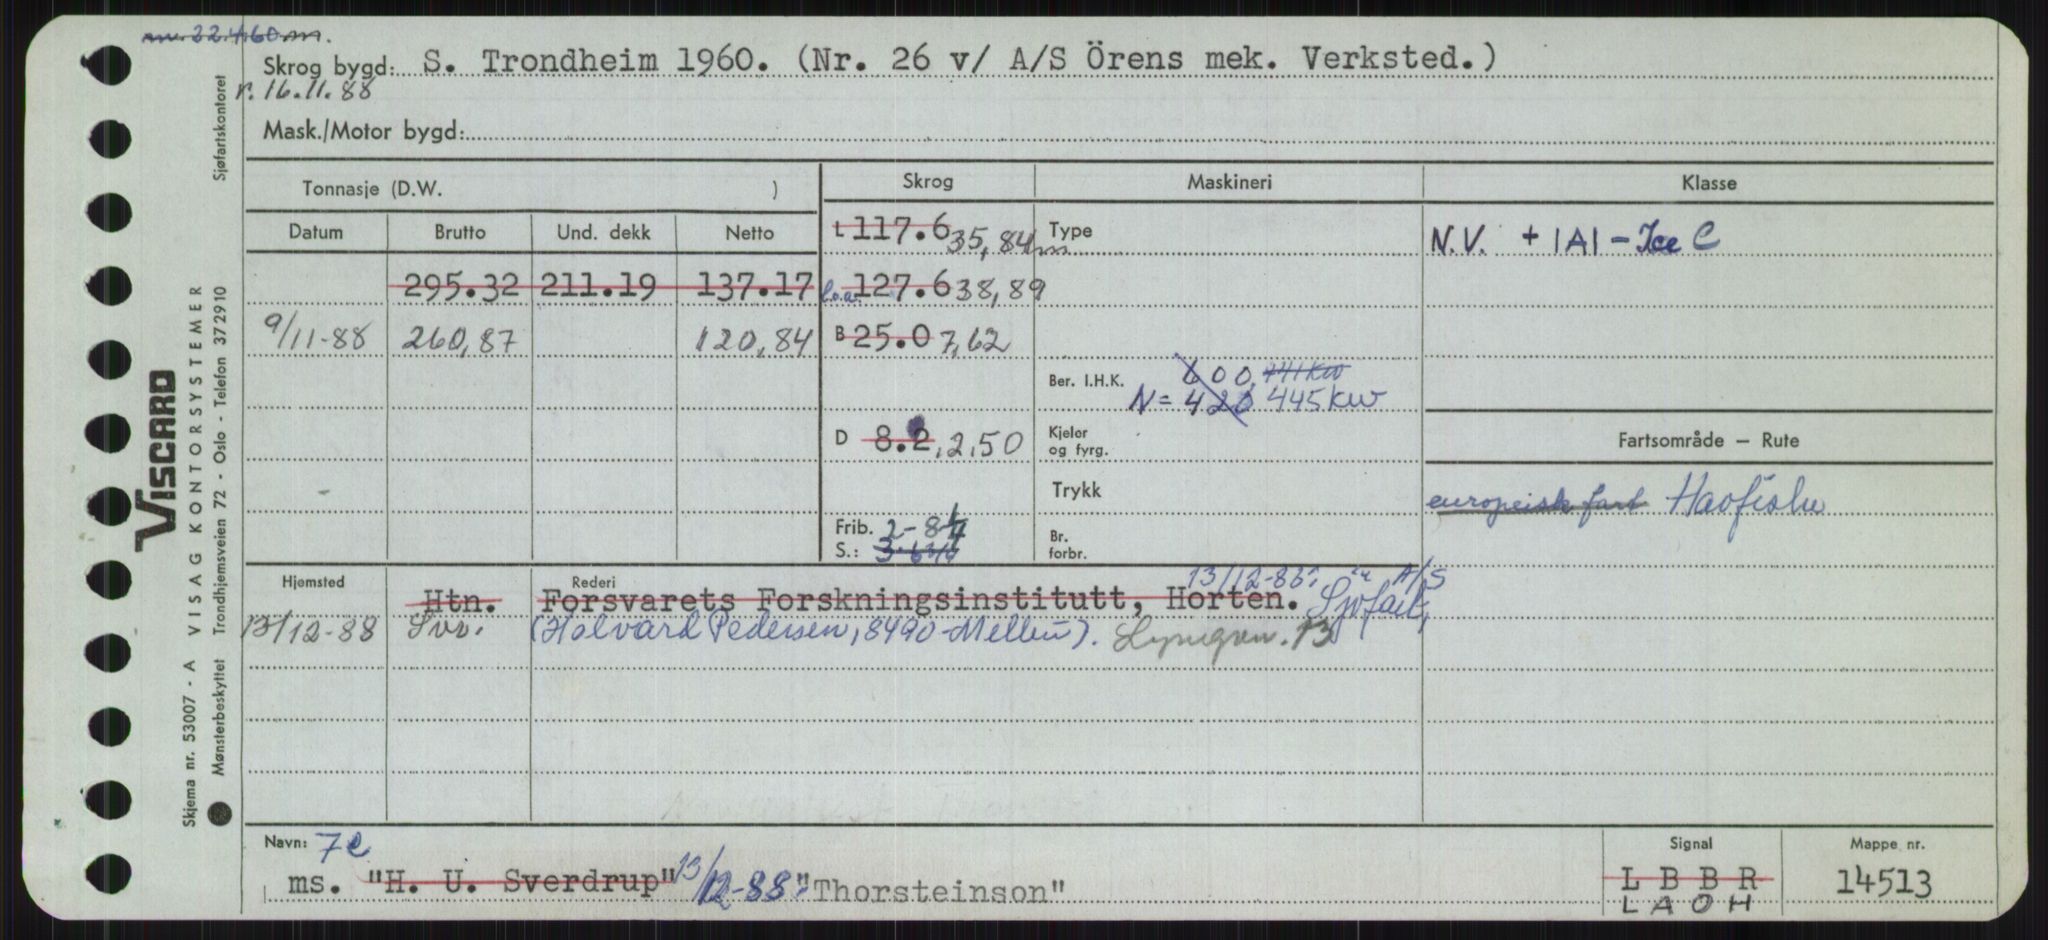 Skrog bygd: S. Trondheim 1960. (Nr. 26 v/ A/S Örens mek. Verksted.)
r. 16.11.88
Mask./Motor bygd:
Tonnasje (D.W. )
Skrog Maskineri Klasse
Datum Brutto Und. dekk Netto
L 117.6 35,84 m Type N.V. + 1A1 - Ice C
295.32 211.19 137.17 l.o.a. 127.6 38,89
9/11-88 260,87 120,84 B 25.0 7,62
Ber. I.H.K. 600, 741 kw
N = 420 445 kw
D 8.2, 2,50 Kjeler og fyrg. Fartsområde — Rute
Trykk europeisk fart Havfiske
Frib. 2-84
S.: Br. forbr.
Hjemsted Rederi 13/12-88: A/S
Htn. Forsvarets Forskningsinstitutt, Horten. Sjøfart,
13/12-88 Svv. (Halvard Pedersen, 8490 Melbu). 13
Navn: 7e Signal Mappe nr.
ms. "H. U. Sverdrup" 13/12-88: "Thorsteinson" L B B R 14513
L A O H
VISCARD
VISAG KONTORSYSTEMER
Skjema nr. 53007 - A
Mønsterbeskyttet Trondhjemsveien 72 - Oslo - Telefon 37 29 10 Sjøfartskontoret